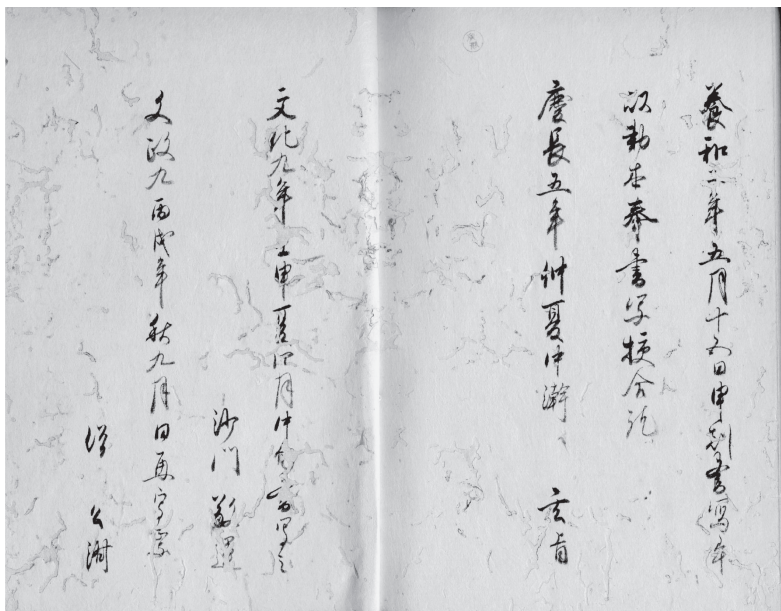 養和二年五月十五日申剋書写了
以勅本奉書写挍合訖
慶長五年仲夏中澣 玄
文化九年壬申夏四月中書写之
沙門
文政九丙戌年秋九月日再写
僧 公